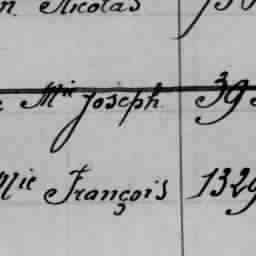 n. Nicolas
Mie Joseph 39
Mie François 1329